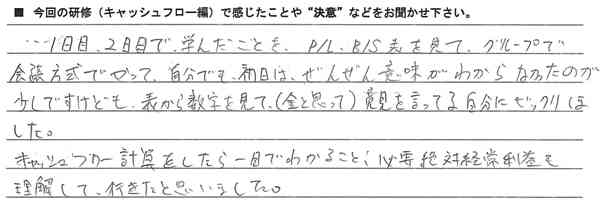 ■ 今回の研修（キャッシュフロー編）で感じたことや“決意”などをお聞かせ下さい。
…1日目、2日目で、学んだことを、P/L、B/S表を見て、グループで
会議方式でやって、自分でも、初日は、ぜんぜん意味がわからなかったのが
少しですけども、表から数字を見て、(金と思って)意見を言ってる自分にビックリしま
した。
キャッシュフロー計算をしたら一目でわかること、必要絶対経常利益も
理解して、行きたと思いました。